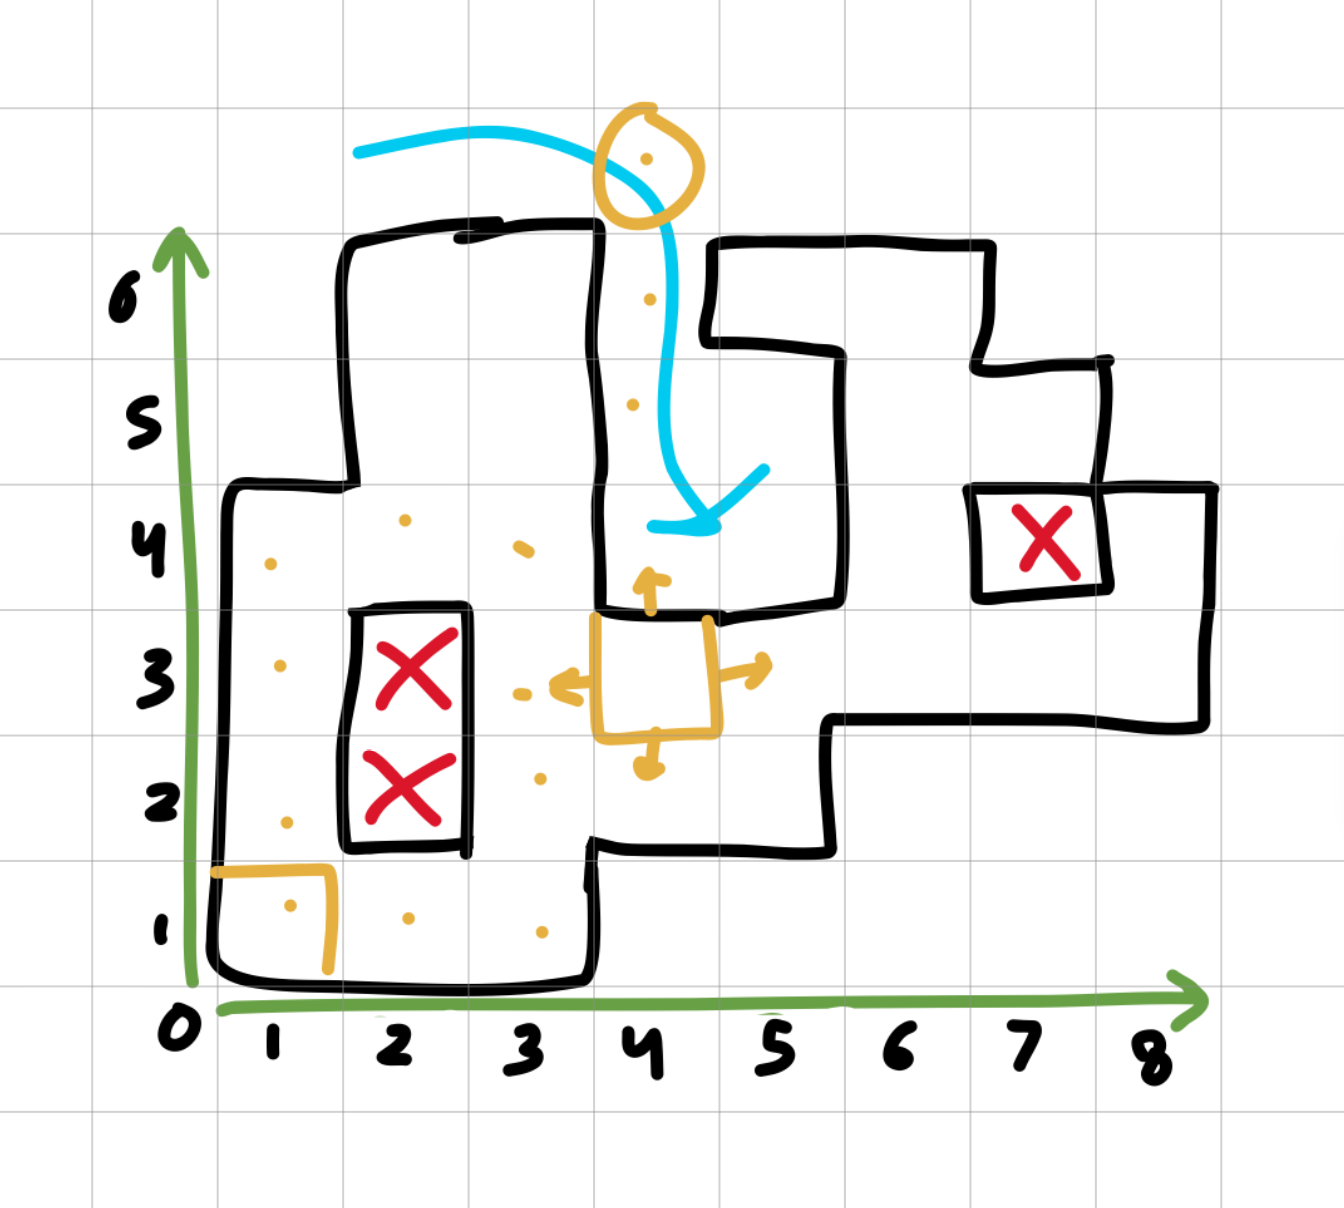 6
5
4
3
2
1
0 1 2 3 4 5 6 7 8